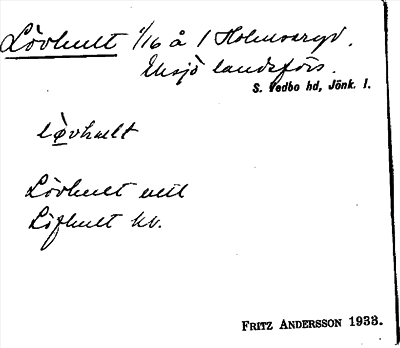 Lövhult 1/16 å 1 Holmsaryd.
Eksjö landsförs.
S. Vedbo hd, Jönk. l.
lövhult
Lövhult
Löfhult kv.
FRITZ ANDERSSON 1933.